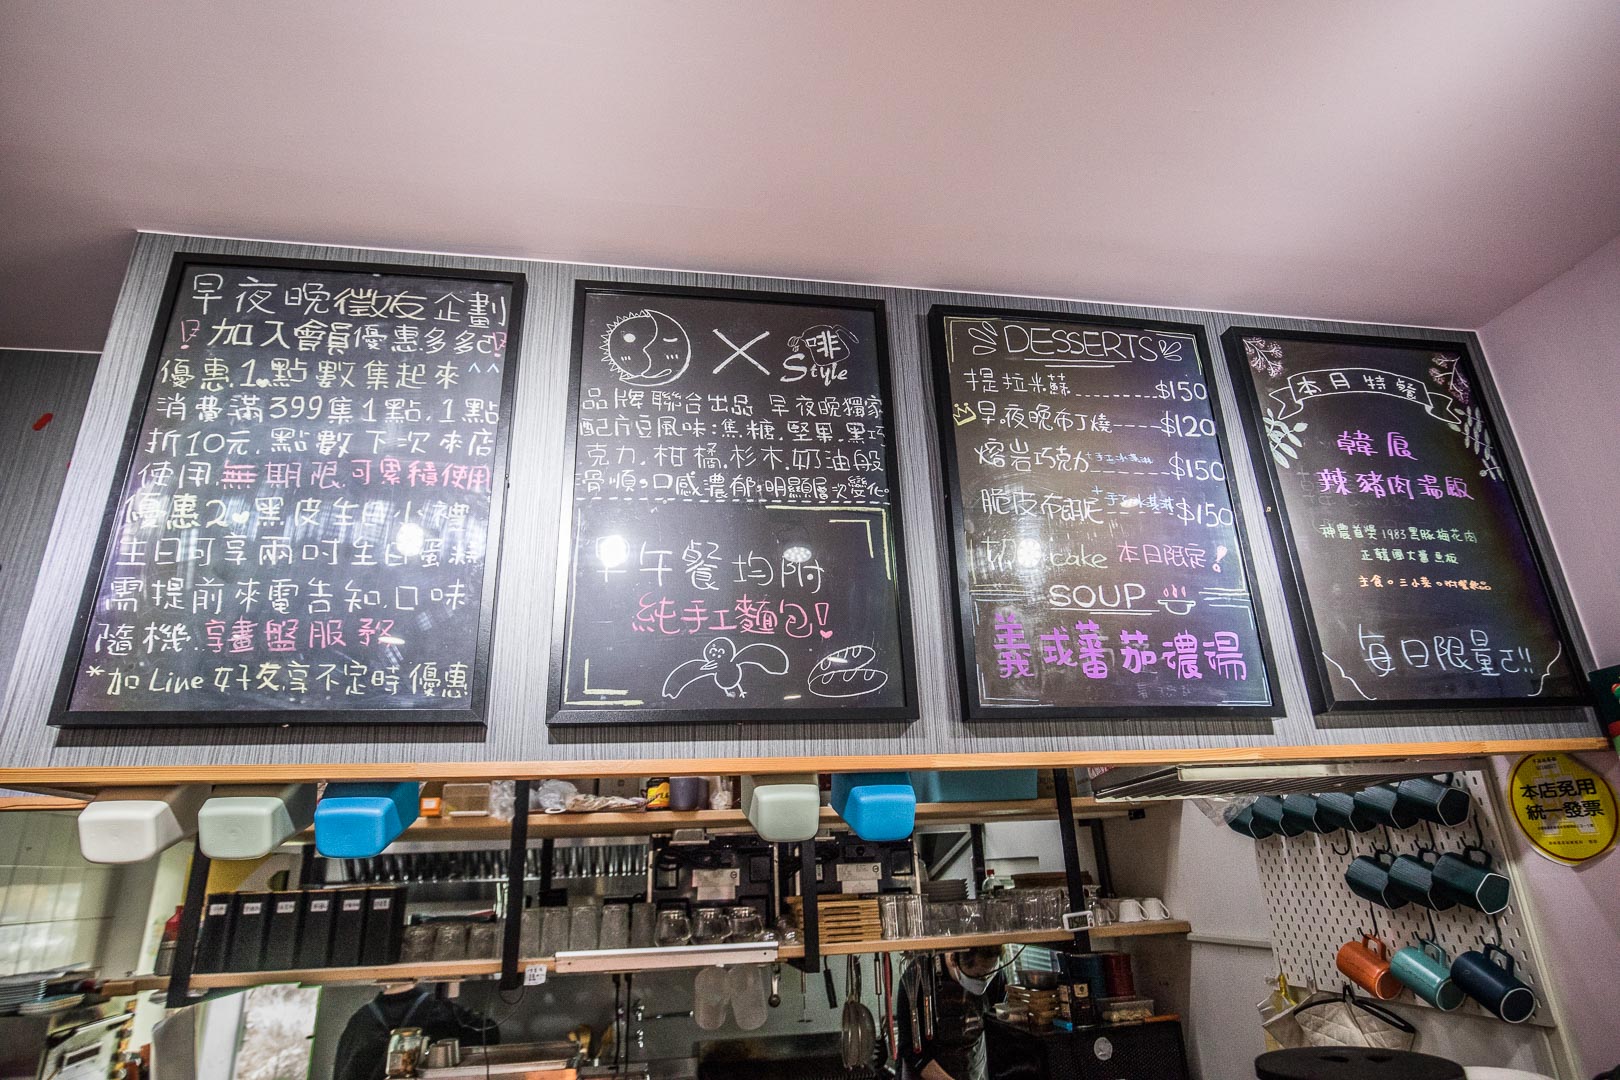 早夜晚徵友企劃
！加入會員優惠多多己！
優惠1.點數集起來^^
消費滿399集1點.1點
折10元.點數下次來店
使用.無期限.可累積使用
優惠2 黑皮生日小禮
生日可享兩吋生日蛋糕
需提前來電告知.口味
隨機.享畫盤服務
*加Line好友.享不定時優惠
X 啡
Style
品牌聯合出品 早夜晚獨家
配方豆風味:焦糖.堅果.黑巧
克力.柑橘.杉木.奶油般
滑順,口感濃郁,明顯層次變化。
早午餐均附
純手工麵包!
DESSERTS
提拉米蘇----$150
早.夜晚布丁燒-----$120
熔岩巧克力+手工冰淇淋---$150
脆皮布朗尼+手工冰淇淋---$150
cake 本日限定!
SOUP
義式蕃茄濃湯
本月特餐
韓屐
辣豬肉湯飯
神農首獎1983黑豚梅花肉
正韓國大醬豆板
主食。三小菜。附餐飲品
每日限量己!!
本店免用
統一發票